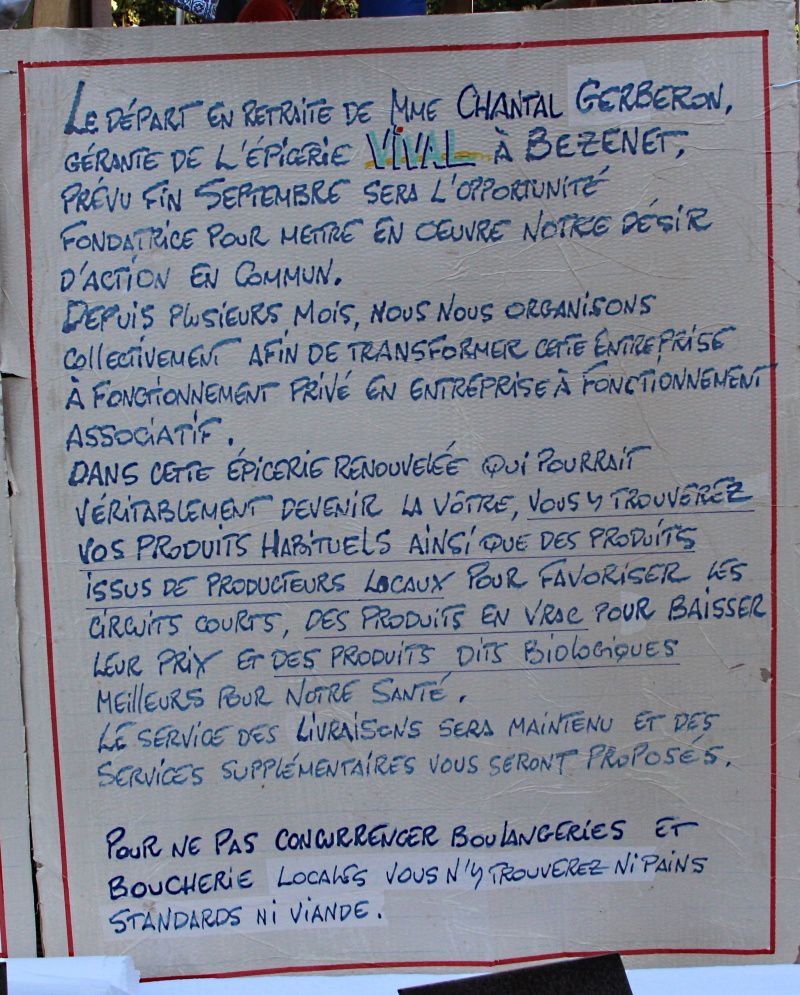 LE DÉPART EN RETRAITE DE MME CHANTAL GERBERON,
GÉRANTE DE L'ÉPICERIE VIVAL À BEZENET,
PRÉVU FIN SEPTEMBRE SERA L'OPPORTUNITÉ
FONDATRICE POUR METTRE EN OEUVRE NOTRE DÉSIR
D'ACTION EN COMMUN.
DEPUIS PLUSIEURS MOIS, NOUS NOUS ORGANISONS
COLLECTIVEMENT AFIN DE TRANSFORMER CETTE ENTREPRISE
À FONCTIONNEMENT PRIVÉ EN ENTREPRISE À FONCTIONNEMENT
ASSOCIATIF.
DANS CETTE ÉPICERIE RENOUVELÉE QUI POURRAIT
VÉRITABLEMENT DEVENIR LA VÔTRE, VOUS Y TROUVEREZ
VOS PRODUITS HABITUELS AINSI QUE DES PRODUITS
ISSUS DE PRODUCTEURS LOCAUX POUR FAVORISER LES
CIRCUITS COURTS, DES PRODUITS EN VRAC POUR BAISSER
LEUR PRIX ET DES PRODUITS DITS BIOLOGIQUES
MEILLEURS POUR NOTRE SANTÉ.
LE SERVICE DES LIVRAISONS SERA MAINTENU ET DES
SERVICES SUPPLÉMENTAIRES VOUS SERONT PROPOSÉS.
POUR NE PAS CONCURRENCER BOULANGERIES ET
BOUCHERIE LOCALES VOUS N'Y TROUVEREZ NI PAINS
STANDARDS NI VIANDE.